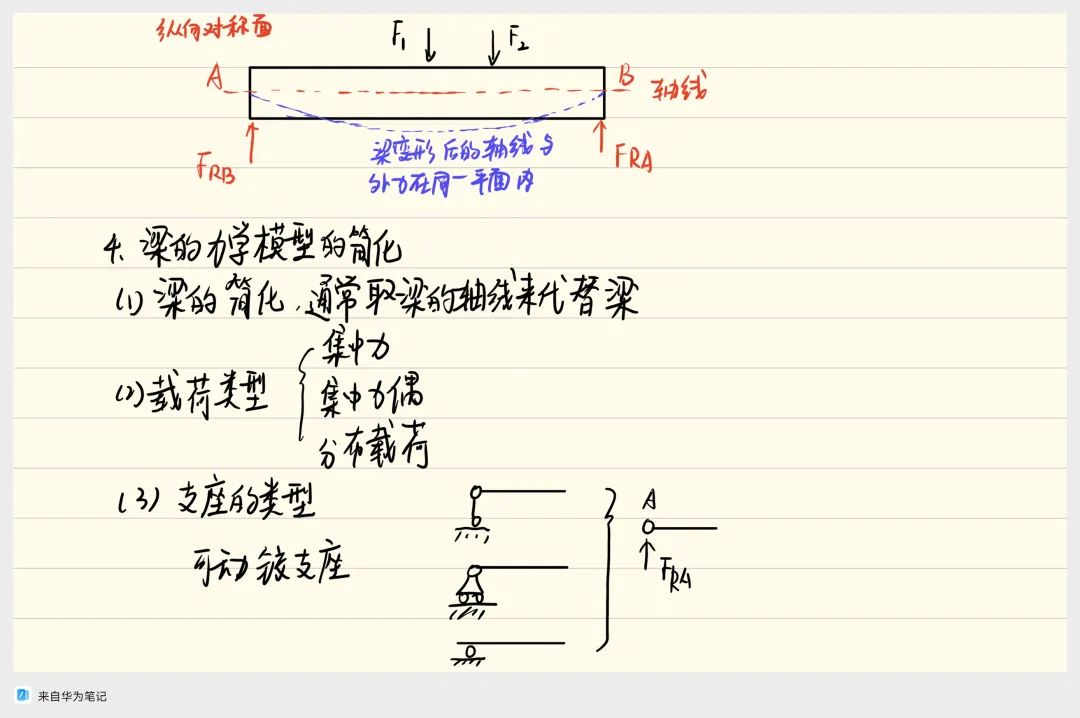 纵向对称面
F₁ F₂
A B 轴线
F_RB F_RA
梁变形后的轴线与
外力在同一平面内
4. 梁的力学模型的简化
(1) 梁的简化,通常取梁的轴线来代替梁
(2) 载荷类型
集中力
集中力偶
分布载荷
(3) 支座的类型
可动铰支座
A
F_RA
来自华为笔记